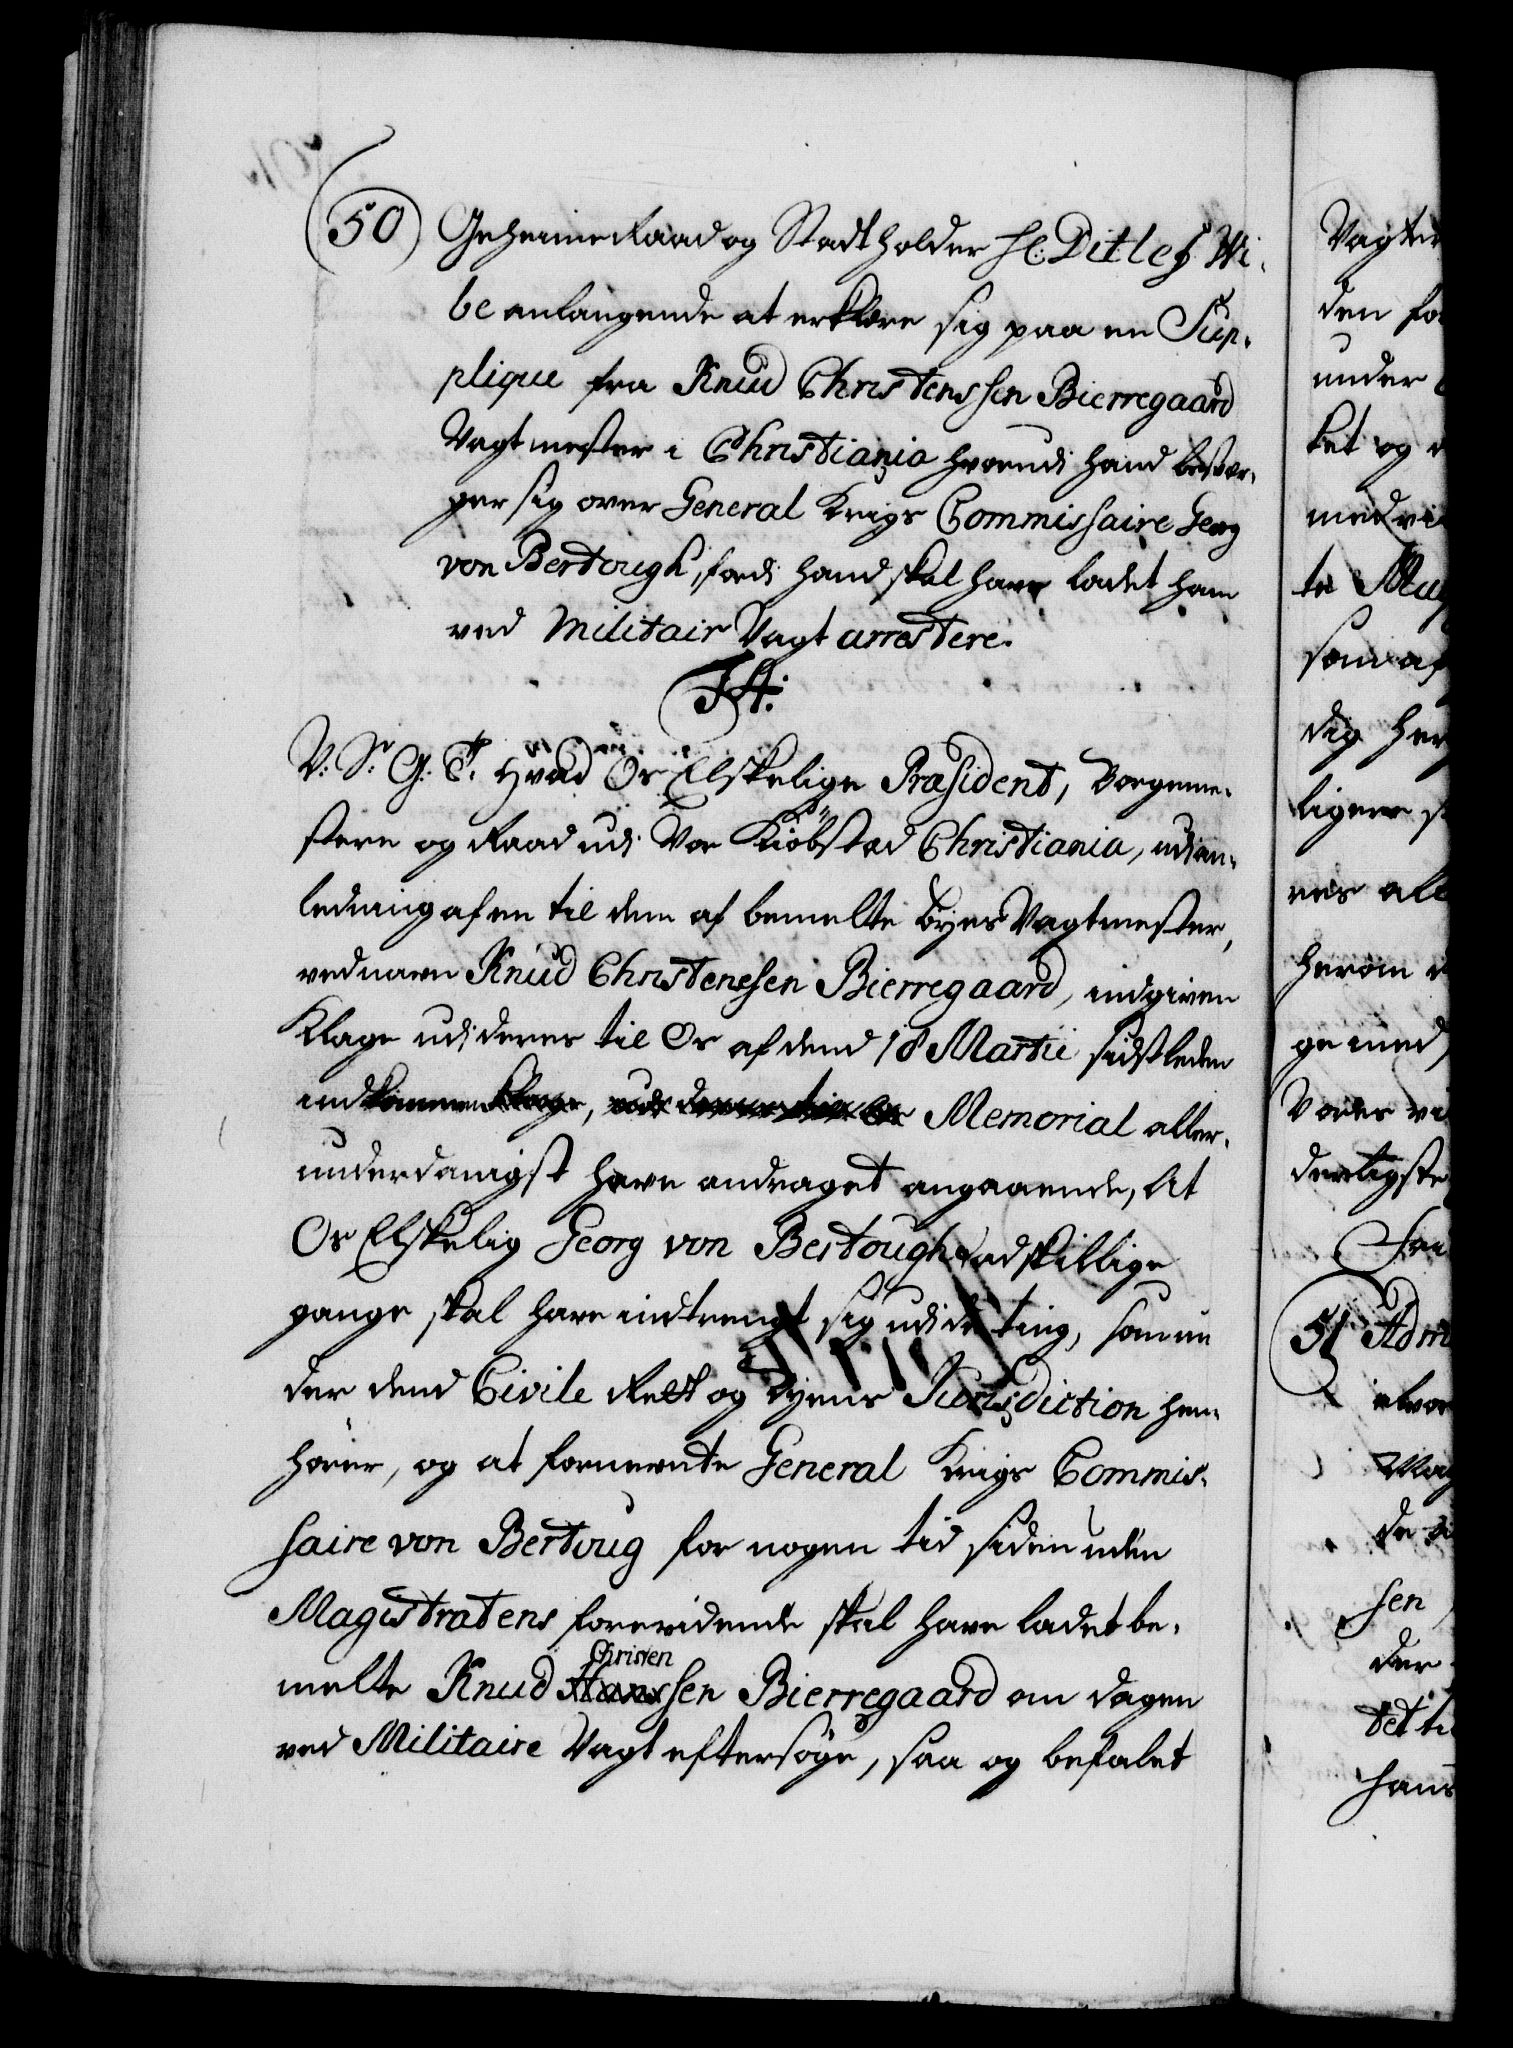 50 Geheime Raad og Stadtholder Hr: Ditlef Wi-
be anlangende at erklære sig paa en Sup-
plique fra Knud Christenssen Bierregaard
Vagtmester i Christiania hvorudi hand besvær-
ger sig over General Krigs Commissaire Georg
von Bertough, fordi hand skal have ladet ham
ved Militair Vagt arrestere.
F4:
V: Sr G: T. Hvad Os Elskelige Præsident, Borgeme-
stere og Raad udi Vor Kiöbsted Christiania, udi an-
ledning af en til dem af bemelte Byes Vagtmester,
ved navn Knud Christenssen Bierregaard, indgiven
Klage udi deres til Os af dend 18 Martii sidstleden
indkomne Klage, udi deres til Os Memorial aller-
underdanigst have andraget angaaende, At
Os Elskelig Georg von Bertough adskillige
gange skal have indtrengt sig udi de ting, som un
der dend Civile Rett og Byens Jurisdiction hen-
hører, og at fornevnte General Krigs Commis-
saire von Bertoug for nogen tid siden uden
Magistratens forevidende skal have ladet be-
melte Knud Hanssen Christen Bierregaard om dagen
ved Militaire Vagt eftersöge, saa og befalet
Vagter
den fo
under
ket og
med vi
te
som af
dig her
ligere
res all
herom
ge med
Vores
derligste
51 Adm
de
sen
der
det ti
hans